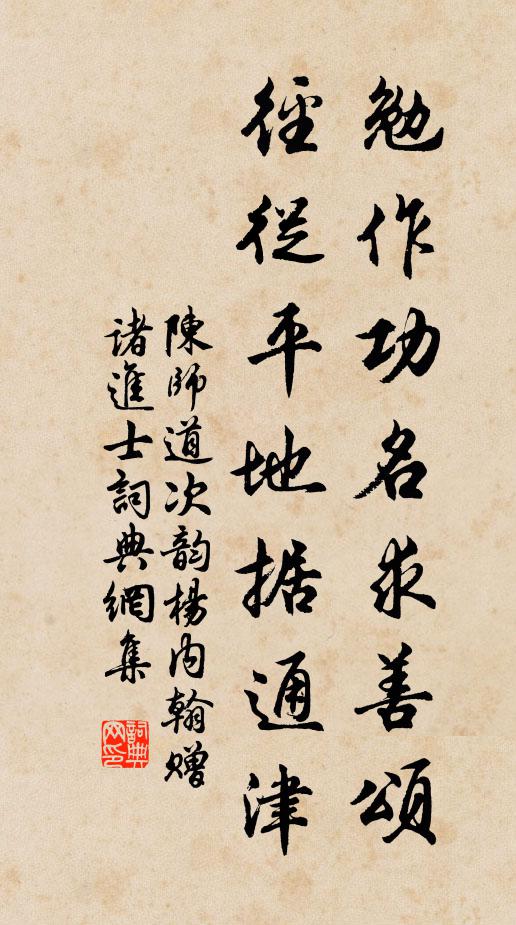 勉作功名求善頌
徑從平地据通津
陳師道次韵楊内翰贈
诸進士詞典網集
詞典
网印